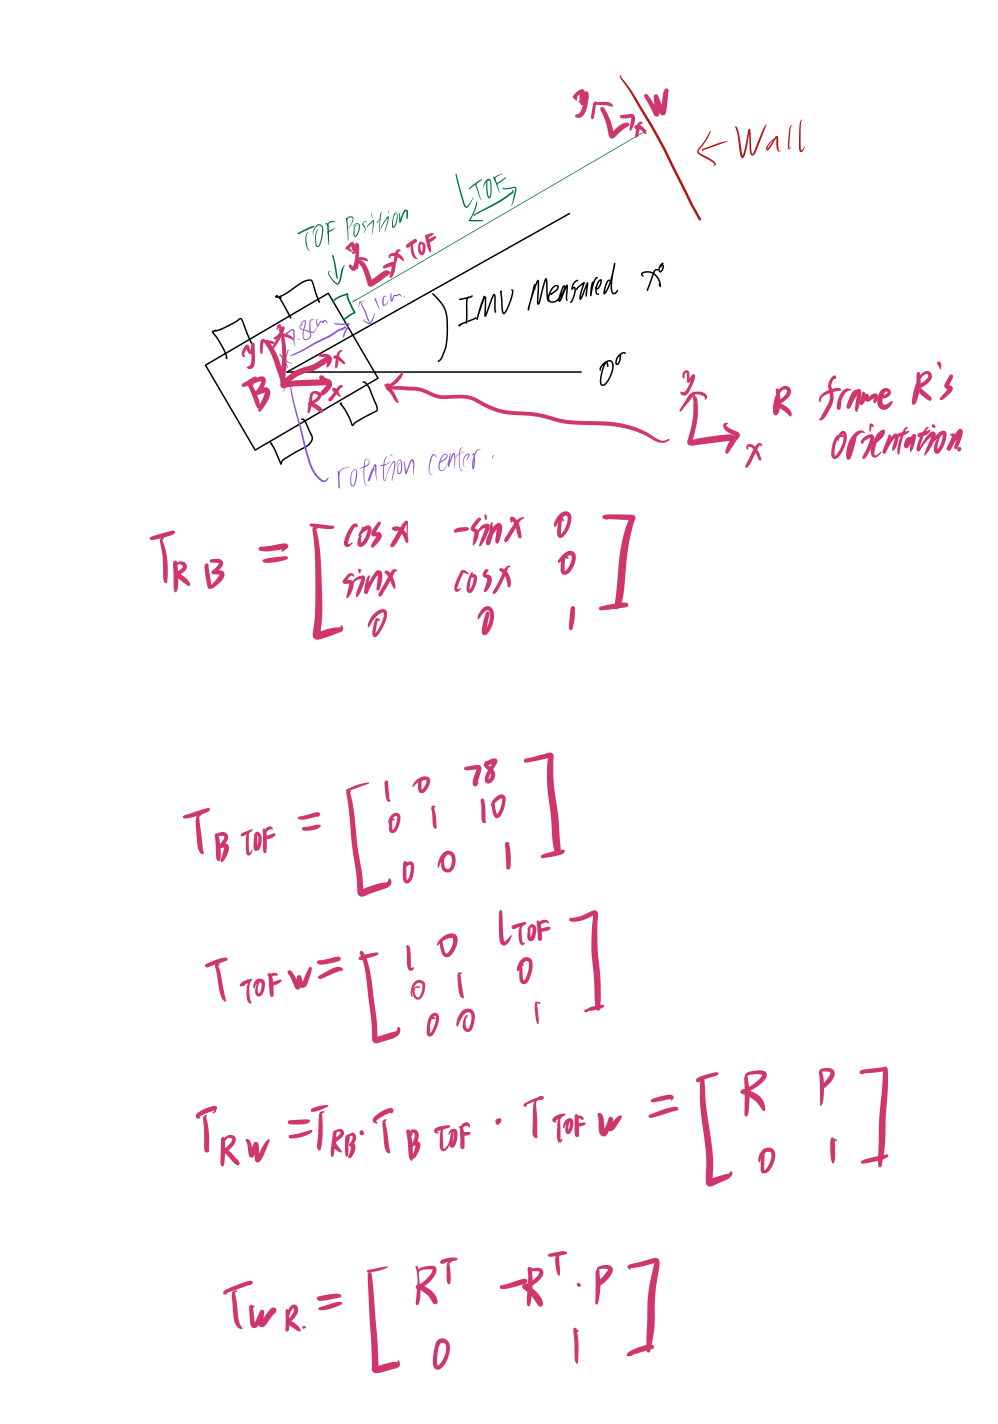 y x W
← Wall
L TOF
TOF Position
y x TOF
1cm.
7.8cm
IMU Measured x°
y x
B
R x
0°
y x R frame R's
orientation
rotation center.
T R B = [ cosx -sinx 0
sinx cosx 0
0 0 1 ]
T B TOF = [ 1 0 78
0 1 10
0 0 1 ]
T TOF W = [ 1 0 L TOF
0 1 0
0 0 1 ]
T R W = T RB · T B TOF · T TOF W = [ R P
0 1 ]
T W R. = [ R^T -R^T · P
0 1 ]